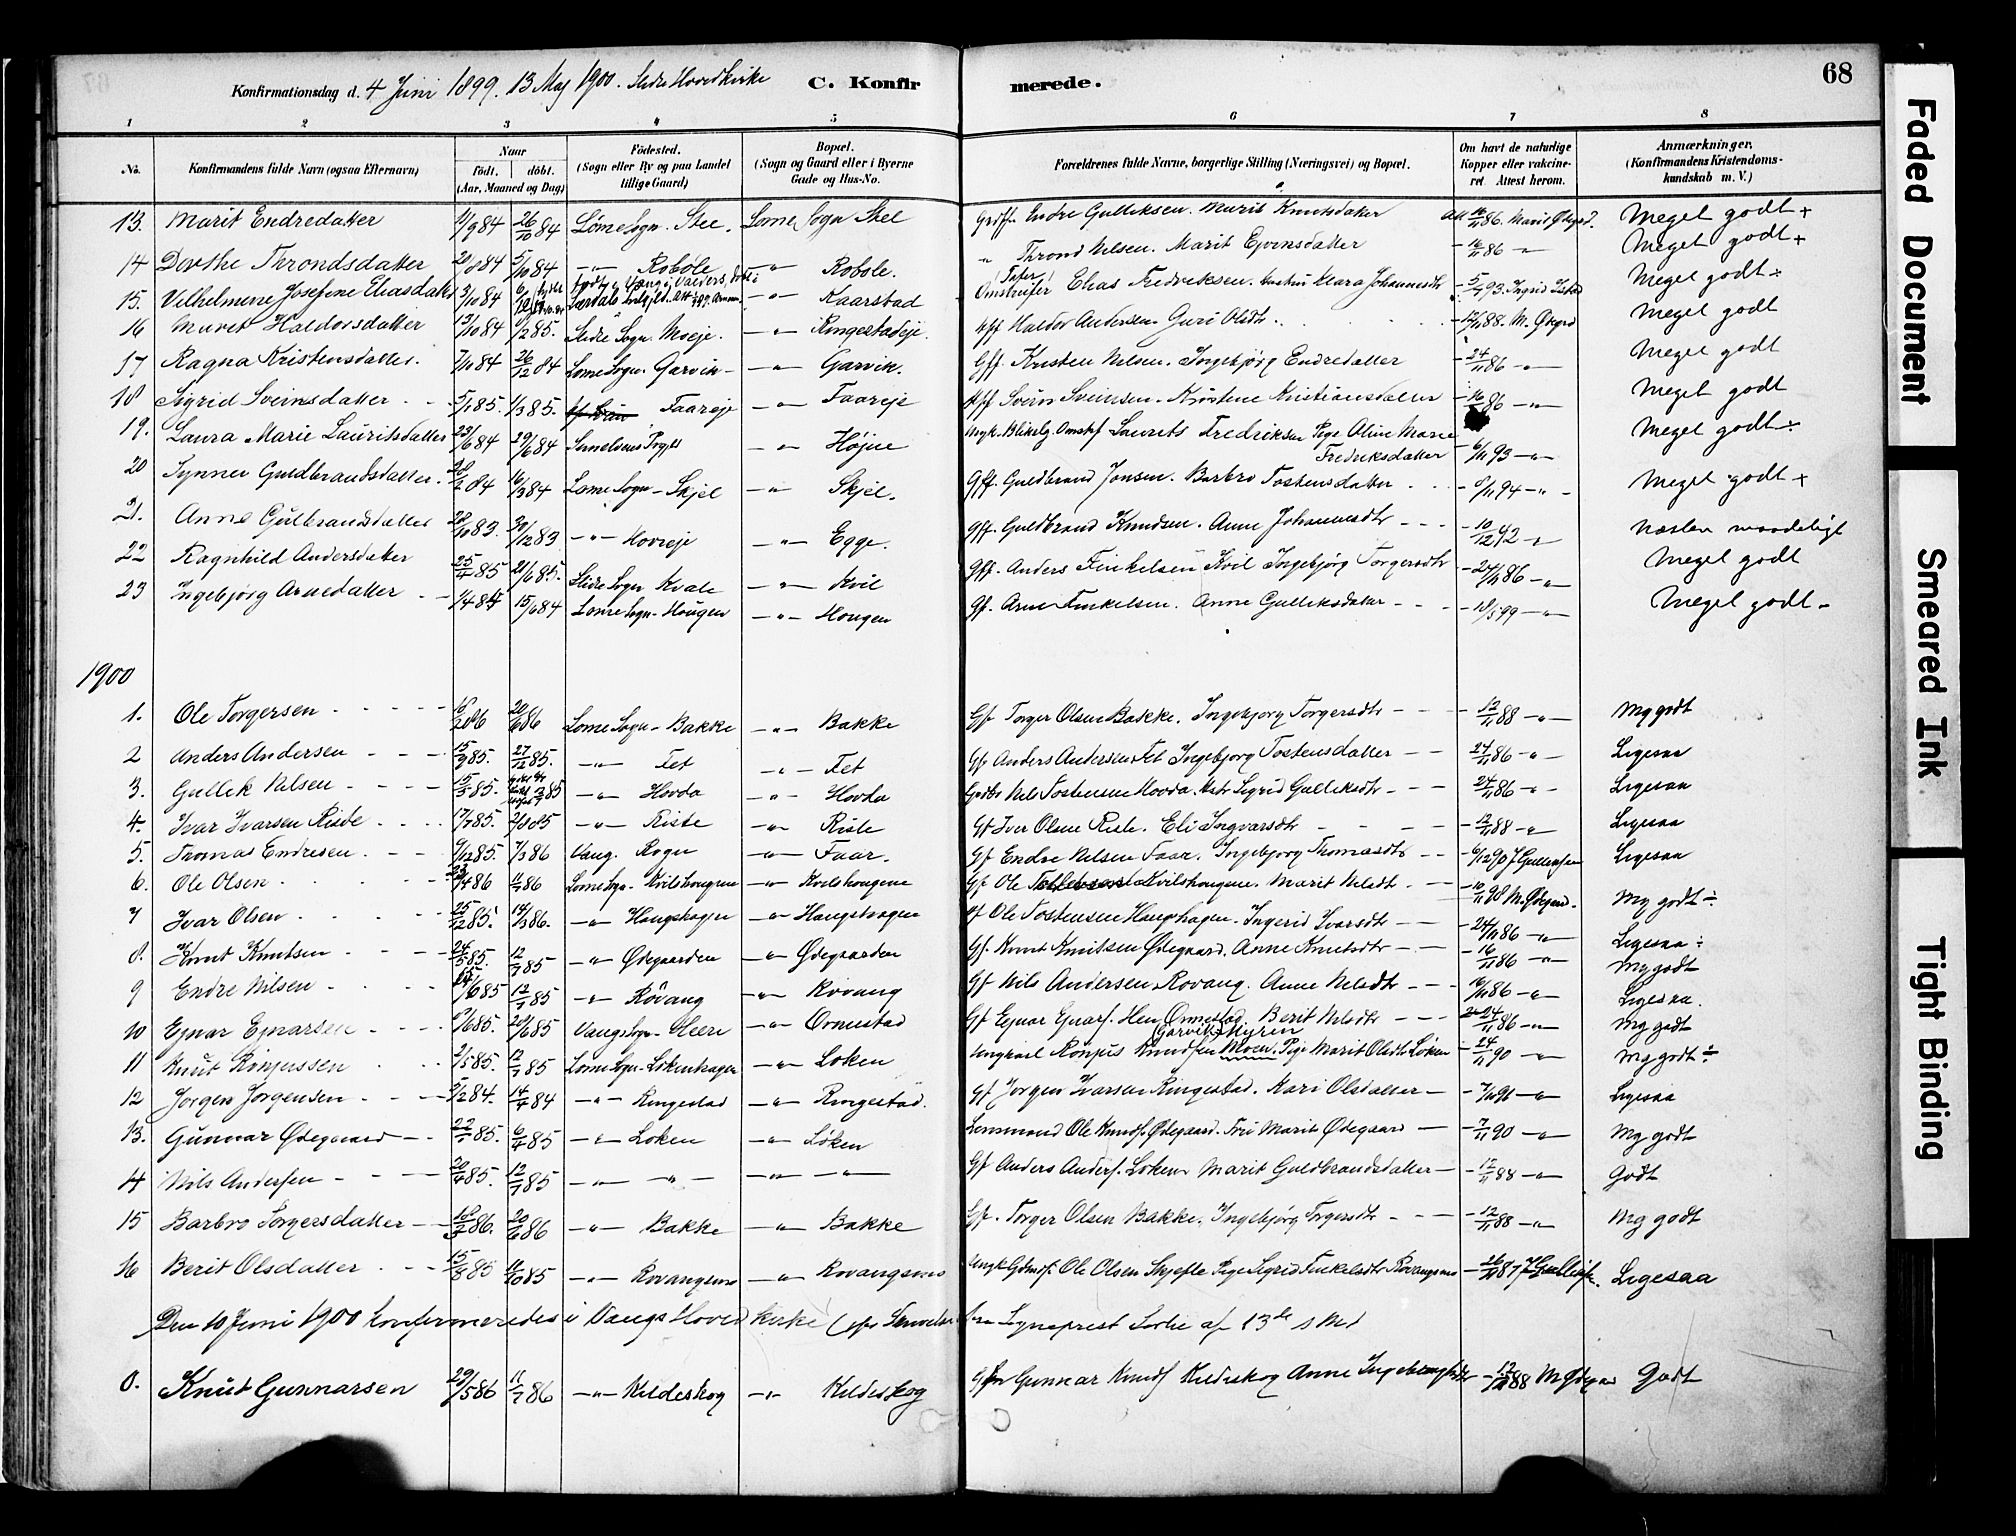 Konfirmationsdag d. 4 Juni 1899. 13 Maj 1900. Slidre Hovedkirke C. Konfirmerede. 68
1 2 3 4 5 6 7 8
No. Konfirmandens fulde Navn (ogsaa Efternavn) Naar Født. døbt. (Aar, Maaned og Dag) Fødested. (Sogn eller By og paa Landet tillige Gaard) Bopæl. (Sogn og Gaard eller i Byerne Gade og Hus-No. Forældrenes fulde Navne, borgerlige Stilling (Næringsvei) og Bopæl. Om havt de naturlige Kopper eller vakcineret. Attest herom. Anmærkninger. (Konfirmandens Kristendomskundskab m. V.)
13. Marit Endredatter 11/9 84 26/10 84 Lome Sogn. Stee. Lome Sogn Stee Endre Gulliksen. Marit Knutsdatter 86. Marit Ødegrd. Meget godt +
14 Dorthe Throndsdatter 20/8 84 5/10 84 -"- Robøle -"- Robole. " Thrond Nilsen. Marit Ejvinsdatter 86 -"- Meget godt +
15. Vilhelmine Josefine Eliasdatter 3/10 84 -"- Kaarstad Elias Fredriksen. Hustru Klara Johannesdtr 93. Ingrid Meget godt ÷
16 Marit Haldorsdatter 13/10 84 85. Slidre Sogn. Moeje. -"- Ringestadeje. Haldor Andersen. Guri Olsdtr. 88. M. Øgrd Meget godt
17 Ragna Kristensdatter. 7/10 84 26/12 84 Lome Sogn. Garvik -"- Garvik. Gff. Kristen Nilsen. Ingebjørg Endredatter 24/11 86 -"- Meget godt
18 Sigrid Sveinsdatter 5/1 85. 1/3 85. Faareje -"- Faareje Svein Sveinsen. Kristine Kristiansdatter 16/11 86 -"- Meget godt
19. Laura Marie Lauritsdatter 23/6 84 29/6 84 -"- Højne Laurits Fredriksen Pige Oline Marie Fredriksdatter 6/11 93 -"- Meget godt ÷
20 Synner Guldbrandsdatter. 84 16/3 84 Lome Sogn - Skjel -"- Skjel. Gff. Guldbrand Jonsen. Barbro Tostensdatter 94 -"- Meget godt +
21. Anne Gulbrandsdatter 28/10 83. 30/12 83. -"- Hovreje -"- Egge. Gff. Guldbrand Knudsen. Anne Johannesdtr 10/12 92 -"- næsten maadeligt
22 Ragnhild Andersdatter 25/4 85 21/6 85. Slidre Sogn Kvale -"- Kvil Gff. Anders Finkelsen Kvil Ingebjørg Torgersdtr 24/11 86 -"- Meget godt
23 Ingebjørg Arnedatter 1/4 84 15/6 84 Lome Sogn - Hougen -"- Hougen Gf. Arne Finkelsen. Anne Gulliksdatter 99 -"- Meget godt -
1900
1. Ole Torgersen 86 20/6 86 Lome Sogn - Bakke -"- Bakke Gf. Torger Olsen Bakke. Ingebjorg Torgersdtr 12/11 88 -"- Mg godt
2 Anders Andersen 15/9 85. 27/12 85. -"- Fet -"- Fet Gf. Anders Andersen Fet Ingebjorg Tostensdatter 24/11 86 -"- Ligesaa
3. Gullik Nilsen 15/5 85. 85 -"- Hovda -"- Hovda Nils Tostensen Hovda. Sigrid Gulliksdtr 24/11 86 -"- Ligesaa
4. Ivar Ivarsen Riste 17/7 85. 2/8 85 -"- Riste -"- Riste Gf Iver Olsen Riste. Eli Ingvarsdtr 12/11 88 -"- Ligesaa
5. Thomas Endresen 9/12 85. 7/3 86 Vang. Rogn -"- Faar. Gf Endre Nilsen Faar. Ingebjorg Thomasdtr 6/12 90 J Gulliksen Ligesaa
6. Ole Olsen. 23/4 86 11/7 86 Lome Sogn - Kvilshougene -"- Kvilshougene Gf Ole Kvilshougene. Marit Nilsdtr. 98 M. Ødegrd. Mg godt ÷
7 Ivar Olsen 25/12 85. 14/3 86. -"- Haugshagen -"- Haugshagen Gf Ole Tostensen Haugshagen. Ingerid Ivarsdtr 24/11 86 -"- Ligesaa ÷
8. Knut Knutsen 24/5 85. 12/7 85 -"- Ødegaarden -"- Ødegaarden Gf. Knut Knutsen Ødegaard. Anne Knutsdtr 16/11 86 -"- Mg godt
9 Endre Nilsen 6 85 12/7 85 -"- Rovang -"- Rovang Gf Nils Andersen Rovang. Anne Nilsdtr 16/11 86 -"- Ligesaa.
10 Ejnar Ejnarsen 6 85. 6 85 Vangs Sogn - Heen -"- Ormestad Gf Ejnar Ejnars. Heen Ormestad. Berit Nilsdtr 24/11 86 -"- Mg godt
11 Knut Ronjussen 2/5 85. 12/7 85 Lome Sogn - Lokenhagen -"- Loken Ungkarl Ronjus Knudsen Garviks Myren Moen. Pige Marit Olsdtr Løken 24/11 90 -"- Mg godt ÷
12 Jørgen Jørgensen 2 84. 14/4 84 -"- Ringestad -"- Ringestad. Gf Jorgen Ivarsen Ringestad. Kari Olsdatter 96 -"- Ligesaa
13. Gunnar Ødegaard 22/1 85. 6/4 85 -"- Loken -"- Løken Lensmand Ole Knuds. Ødegaard. Fru Marit Ødegaard 7/11 90 -"- Mg godt
14 Nils Andersen 20/4 85. 12/7 85 -"- -"- -"- -"- Gf Anders Anders. Loken Marit Guldbrandsdatter 12/11 88 -"- Godt
15 Barbro Torgersdatter 86. 20/6 86 -"- Bakke -"- Bakke Gf. Torger Olsen Bakke. Ingebjørg Torgersdtr 12/11 88 -"- Mg godt
16 Berit Olsdatter 15/8 85 11/10 85 -"- Rovangsens -"- Rovangsens Ole Olsen Skjefte Pige Sigrid Finkelsdtr Rovangsens 87 J Gulliks. Ligesaa
Den 10 Juni 1900 konfirmeredes i Vangs Hovedkirke (efr Skrivelse fra Sogneprest af 13de s Md
0. Knut Gunnarsen 29/5 86 11/7 86 -"- Kildeskog -"- Kildeskog Gunnar Knuds Kildeskog Anne Ingebrigtsdtr 12/11 88 M Ødegrd Godt
Faded Document
Smeared Ink
Tight Binding